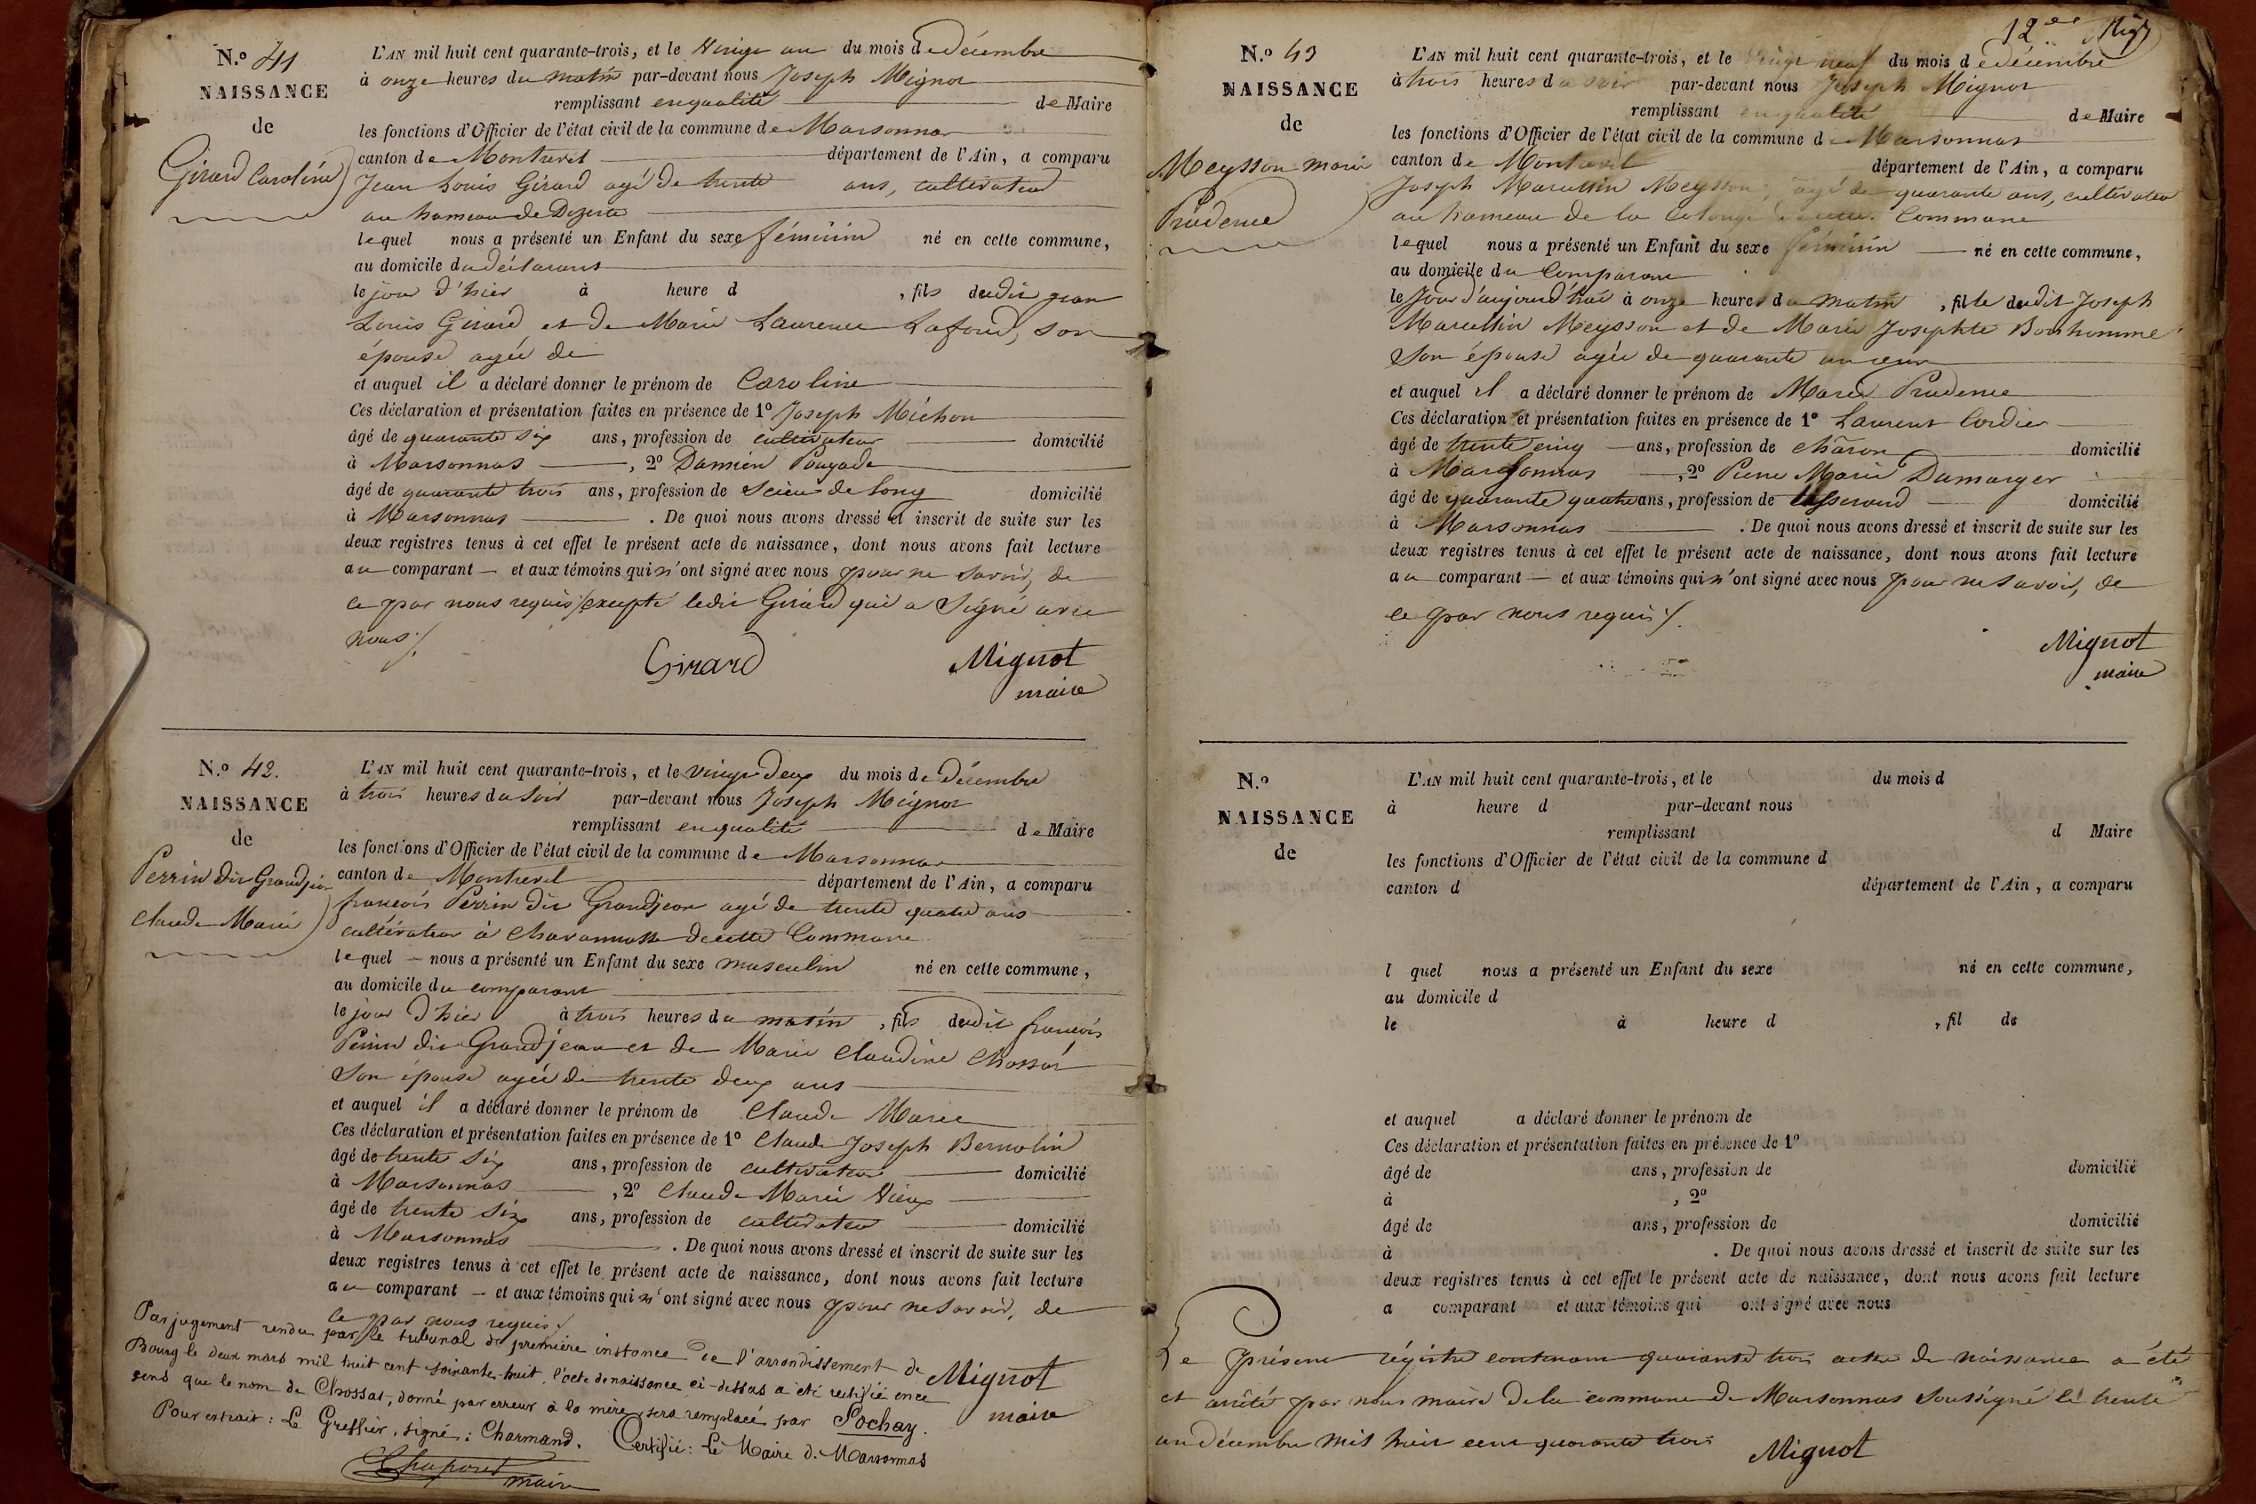 N.º 41
NAISSANCE
de
Girard Caroline
L'AN mil huit cent quarante-trois, et le Vingt un du mois de décembre
à onze heures du matin par-devant nous Joseph Mignot
remplissant en qualité de Maire
les fonctions d'Officier de l'état civil de la commune de Marsonnas
canton de Montrevel département de l'Ain, a comparu
Jean Louis Girard agé de trente ans, cultivateur
au hameau de
lequel nous a présenté un Enfant du sexe féminin né en cette commune,
au domicile du déclarant
le jour d'hier à heure d , fils dudit Jean
Louis Girard et de Marie Laurence Lafond, son
épouse agée de
et auquel il a déclaré donner le prénom de Caroline
Ces déclaration et présentation faites en présence de 1º Joseph Michon
âgé de quarante six ans, profession de cultivateur domicilié
à Marsonnas , 2º Damien
âgé de quarante trois ans, profession de Scieur de long domicilié
à Marsonnas . De quoi nous avons dressé et inscrit de suite sur les
deux registres tenus à cet effet le présent acte de naissance, dont nous avons fait lecture
au comparant et aux témoins qui n'ont signé avec nous pour ne savoir, de
ce par nous requis excepté ledit Girard qui a signé avec
nous ./.
Girard
Mignot
maire
N.º 42.
NAISSANCE
de
Perrin dit Grandjean
Claude Marie
L'AN mil huit cent quarante-trois, et le vingt deux du mois de décembre
à trois heures du soir par-devant nous Joseph Mignot
remplissant en qualité de Maire
les fonctions d'Officier de l'état civil de la commune de Marsonnas
canton de Montrevel département de l'Ain, a comparu
françois Perrin dit Grandjean agé de trente quatre ans
cultivateur à de cette Commune
lequel nous a présenté un Enfant du sexe masculin né en cette commune,
au domicile du comparant
le jour d'hier à trois heures du matin , fils dudit françois
Perrin dit Grandjean et de Marie Claudine Chossat
son épouse agée de trente deux ans
et auquel il a déclaré donner le prénom de Claude Marie
Ces déclaration et présentation faites en présence de 1º Claude Joseph Bernolin
âgé de trente six ans, profession de cultivateur domicilié
à Marsonnas , 2º Claude Marie Vieux
âgé de trente six ans, profession de cultivateur domicilié
à Marsonnas . De quoi nous avons dressé et inscrit de suite sur les
deux registres tenus à cet effet le présent acte de naissance, dont nous avons fait lecture
au comparant et aux témoins qui n'ont signé avec nous pour ne savoir, de
ce par nous requis ./.
Mignot
maire
Par jugement rendu par le tribunal de première instance de l'arrondissement de
Bourg le deux mars mil huit cent soixante-huit, l'acte de naissance ci-dessus a été rectifié en ce
sens que le nom de Chossat, donné par erreur à la mère, sera remplacé par Pochay.
Pour extrait : Le Greffier, signé : Charmand. Certifié : Le Maire de Marsonnas
maire
12.me
N.º 43
NAISSANCE
de
Meysson Marie
Prudence
L'AN mil huit cent quarante-trois, et le Vingt neuf du mois de décembre
à trois heures du soir par-devant nous Joseph Mignot
remplissant en qualité de Maire
les fonctions d'Officier de l'état civil de la commune de Marsonnas
canton de Montrevel département de l'Ain, a comparu
Joseph Marcellin Meysson, agé de quarante ans, cultivateur
au hameau de la de cette Commune
lequel nous a présenté un Enfant du sexe féminin né en cette commune,
au domicile du Comparant
le Jour d'aujourd'hui à onze heures du matin , fille dudit Joseph
Marcellin Meysson et de Marie Josephte Bonhomme
son épouse agée de quarante un ans
et auquel il a déclaré donner le prénom de Marie Prudence
Ces déclaration et présentation faites en présence de 1º Laurent Cordier
âgé de trente cinq ans, profession de charon domicilié
à Marsonnas , 2º Pierre Marie Damarger
âgé de quarante quatre ans, profession de tisserand domicilié
à Marsonnas . De quoi nous avons dressé et inscrit de suite sur les
deux registres tenus à cet effet le présent acte de naissance, dont nous avons fait lecture
au comparant et aux témoins qui n'ont signé avec nous pour ne savoir, de
ce par nous requis ./.
Mignot
maire
N.º
NAISSANCE
de
L'AN mil huit cent quarante-trois, et le du mois d
à heure d par-devant nous
remplissant d Maire
les fonctions d'Officier de l'état civil de la commune d
canton d département de l'Ain, a comparu
l quel nous a présenté un Enfant du sexe né en cette commune,
au domicile d
le à heure d , fil de
et auquel a déclaré donner le prénom de
Ces déclaration et présentation faites en présence de 1º
âgé de ans, profession de domicilié
à , 2º
âgé de ans, profession de domicilié
à . De quoi nous avons dressé et inscrit de suite sur les
deux registres tenus à cet effet le présent acte de naissance, dont nous avons fait lecture
a comparant et aux témoins qui ont signé avec nous
Le présent régistre contenant quarante trois actes de naissance a été
et arrêté par nous maire de la commune de Marsonnas soussigné le trente
un décembre mil huit cent quarante trois
Mignot